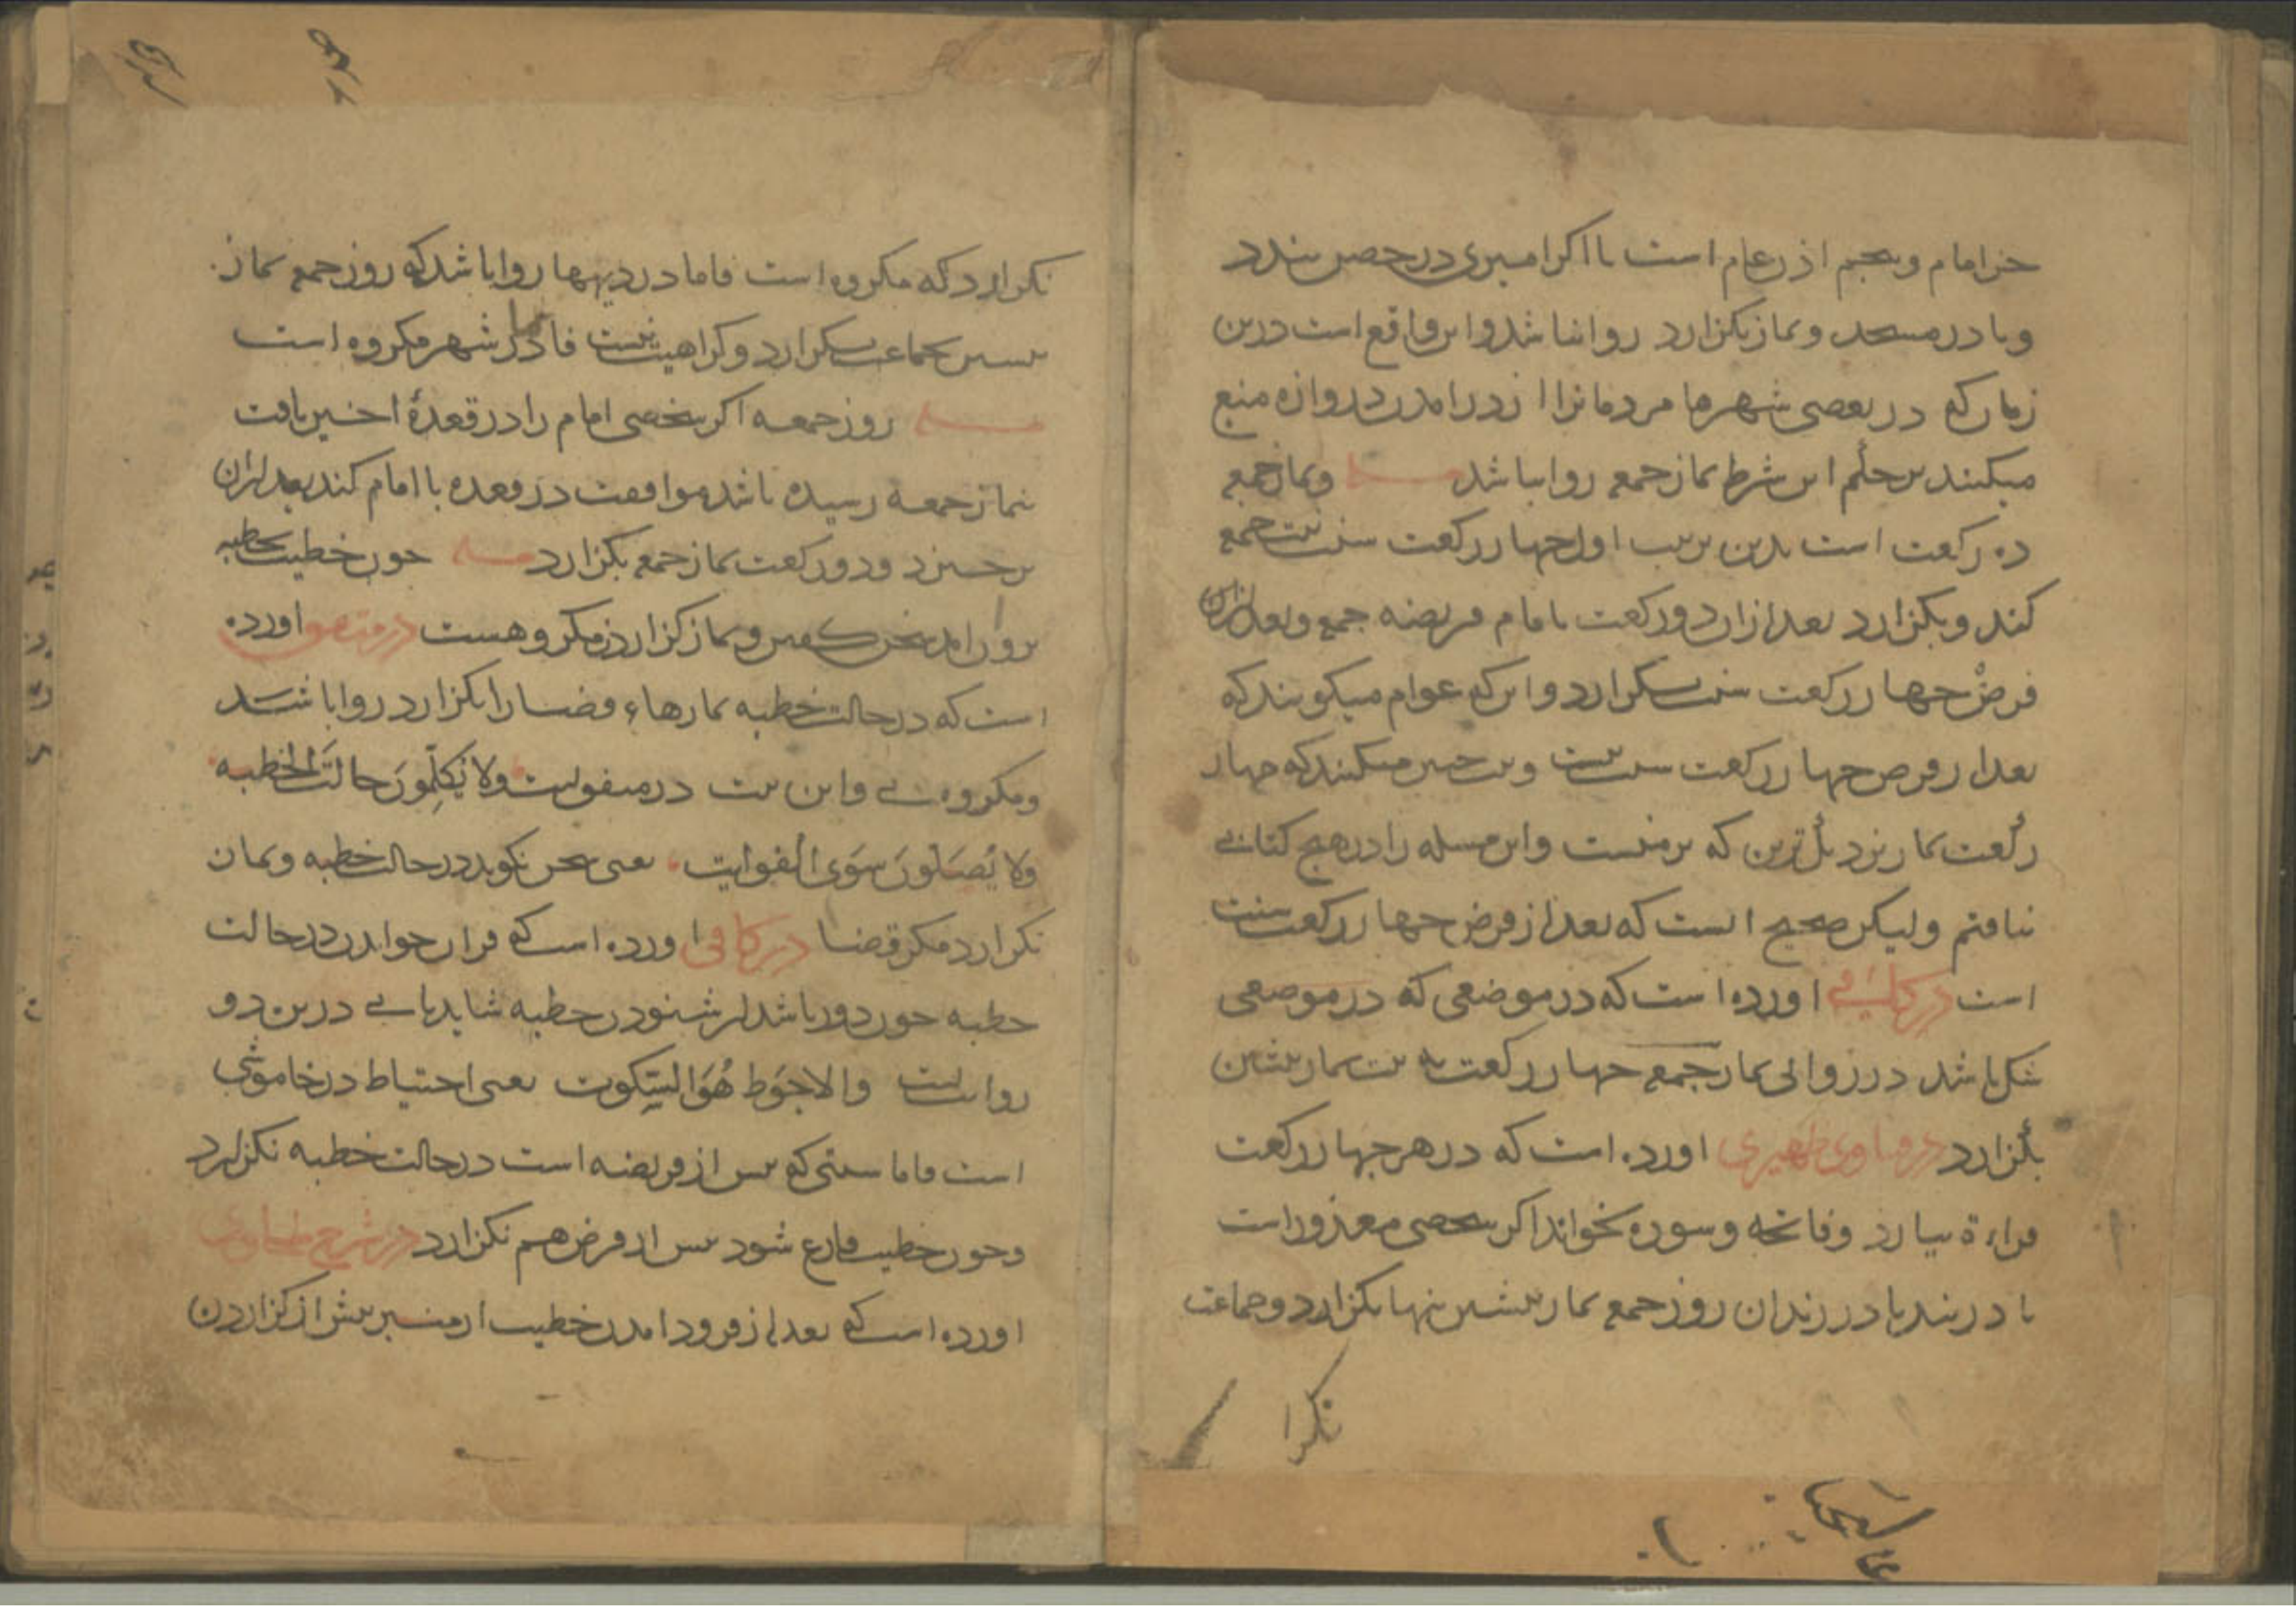 جز امام و پنجم اذن عام است تا اگر امیری در حصن بندد
و یا در مسجد و نماز بگزارد روا نباشد و این واقع است درین
زمان که در بعضی شهرها مردمانرا از درامدن دروازه منع
میکنند برحکم این شرط نماز جمعه روا نباشد مسله و نماز جمعه
ده رکعت است بدین ترتیب اول چهار رکعت سنت نیت جمعه
کند و بگزارد بعد ازان دو رکعت با امام فریضه جمعه و بعد ازین
فرض چهار رکعت سنت بگزارد و این که عوام میگویند که
بعد از فرض چهار رکعت سنت نیست و نیت چنین میکنند که چهار
رکعت نماز پزدیک ترین که بر منست و این مسله را در هیچ کتابی
نیافتم ولیکن صحیح انست که بعد از فرض چهار رکعت سنت
است در کافی اورده است که در موضعی که در موضعی
شک باشد در روائی نماز جمعه چهار رکعت به نیت نماز پیشین
بگزارد در فتاوی ظهیری اورده است که در هر چهار رکعت
قراءة بیارد و فاتحه و سوره بخواند اگر شخصی معذور است
یا در بند یا در زندان روز جمعه نماز پیشین تنها بگزارد و جماعت
نکرا
نکزارد که مکروه است فاما در دیهها روا باشد که روز جمعه نماز
پیشین بجماعت بگزارد و کراهیت نیست فاما در شهر مکروه است
مسله روز جمعه اگر شخصی امام را در قعدهٔ اخیر یافت
نماز جمعه رسیده باشد موافقت در قعده با امام کند بعد ازان
برخیزد و دو رکعت نماز جمعه بگزارد مسله چون خطیب بخطبه
بیرون اید سخن گفتن و نماز گزاردن مکروهست در اورده
است که در حالت خطبه نمازهاء قضا را بگزارد روا باشد
و مکروه نی و این نیت در منقولست ولا یُکَلِّمُونَ حالَتَ الخطبه
ولا یُصَلّونَ سِوَی الفوایت یعنی سخن نکوید در حالت خطبه و نماز
نکزارد مکر قضا در کافی اورده است که قران خواندن در حالت
خطبه چون دور باشد از شنودن خطبه شاید یا نی درین دو
روایتست والاحوَط هُوَ السّکوت یعنی احتیاط در خاموشی
است فاما سنتی که پس از فریضه است در حالت خطبه نکزارد
و چون خطیب فارغ شود پس از فرض هم نکزارد در شرح طحاوی
اورده است که بعد از فرود امدن خطیب از منبر پیش از گزاردن